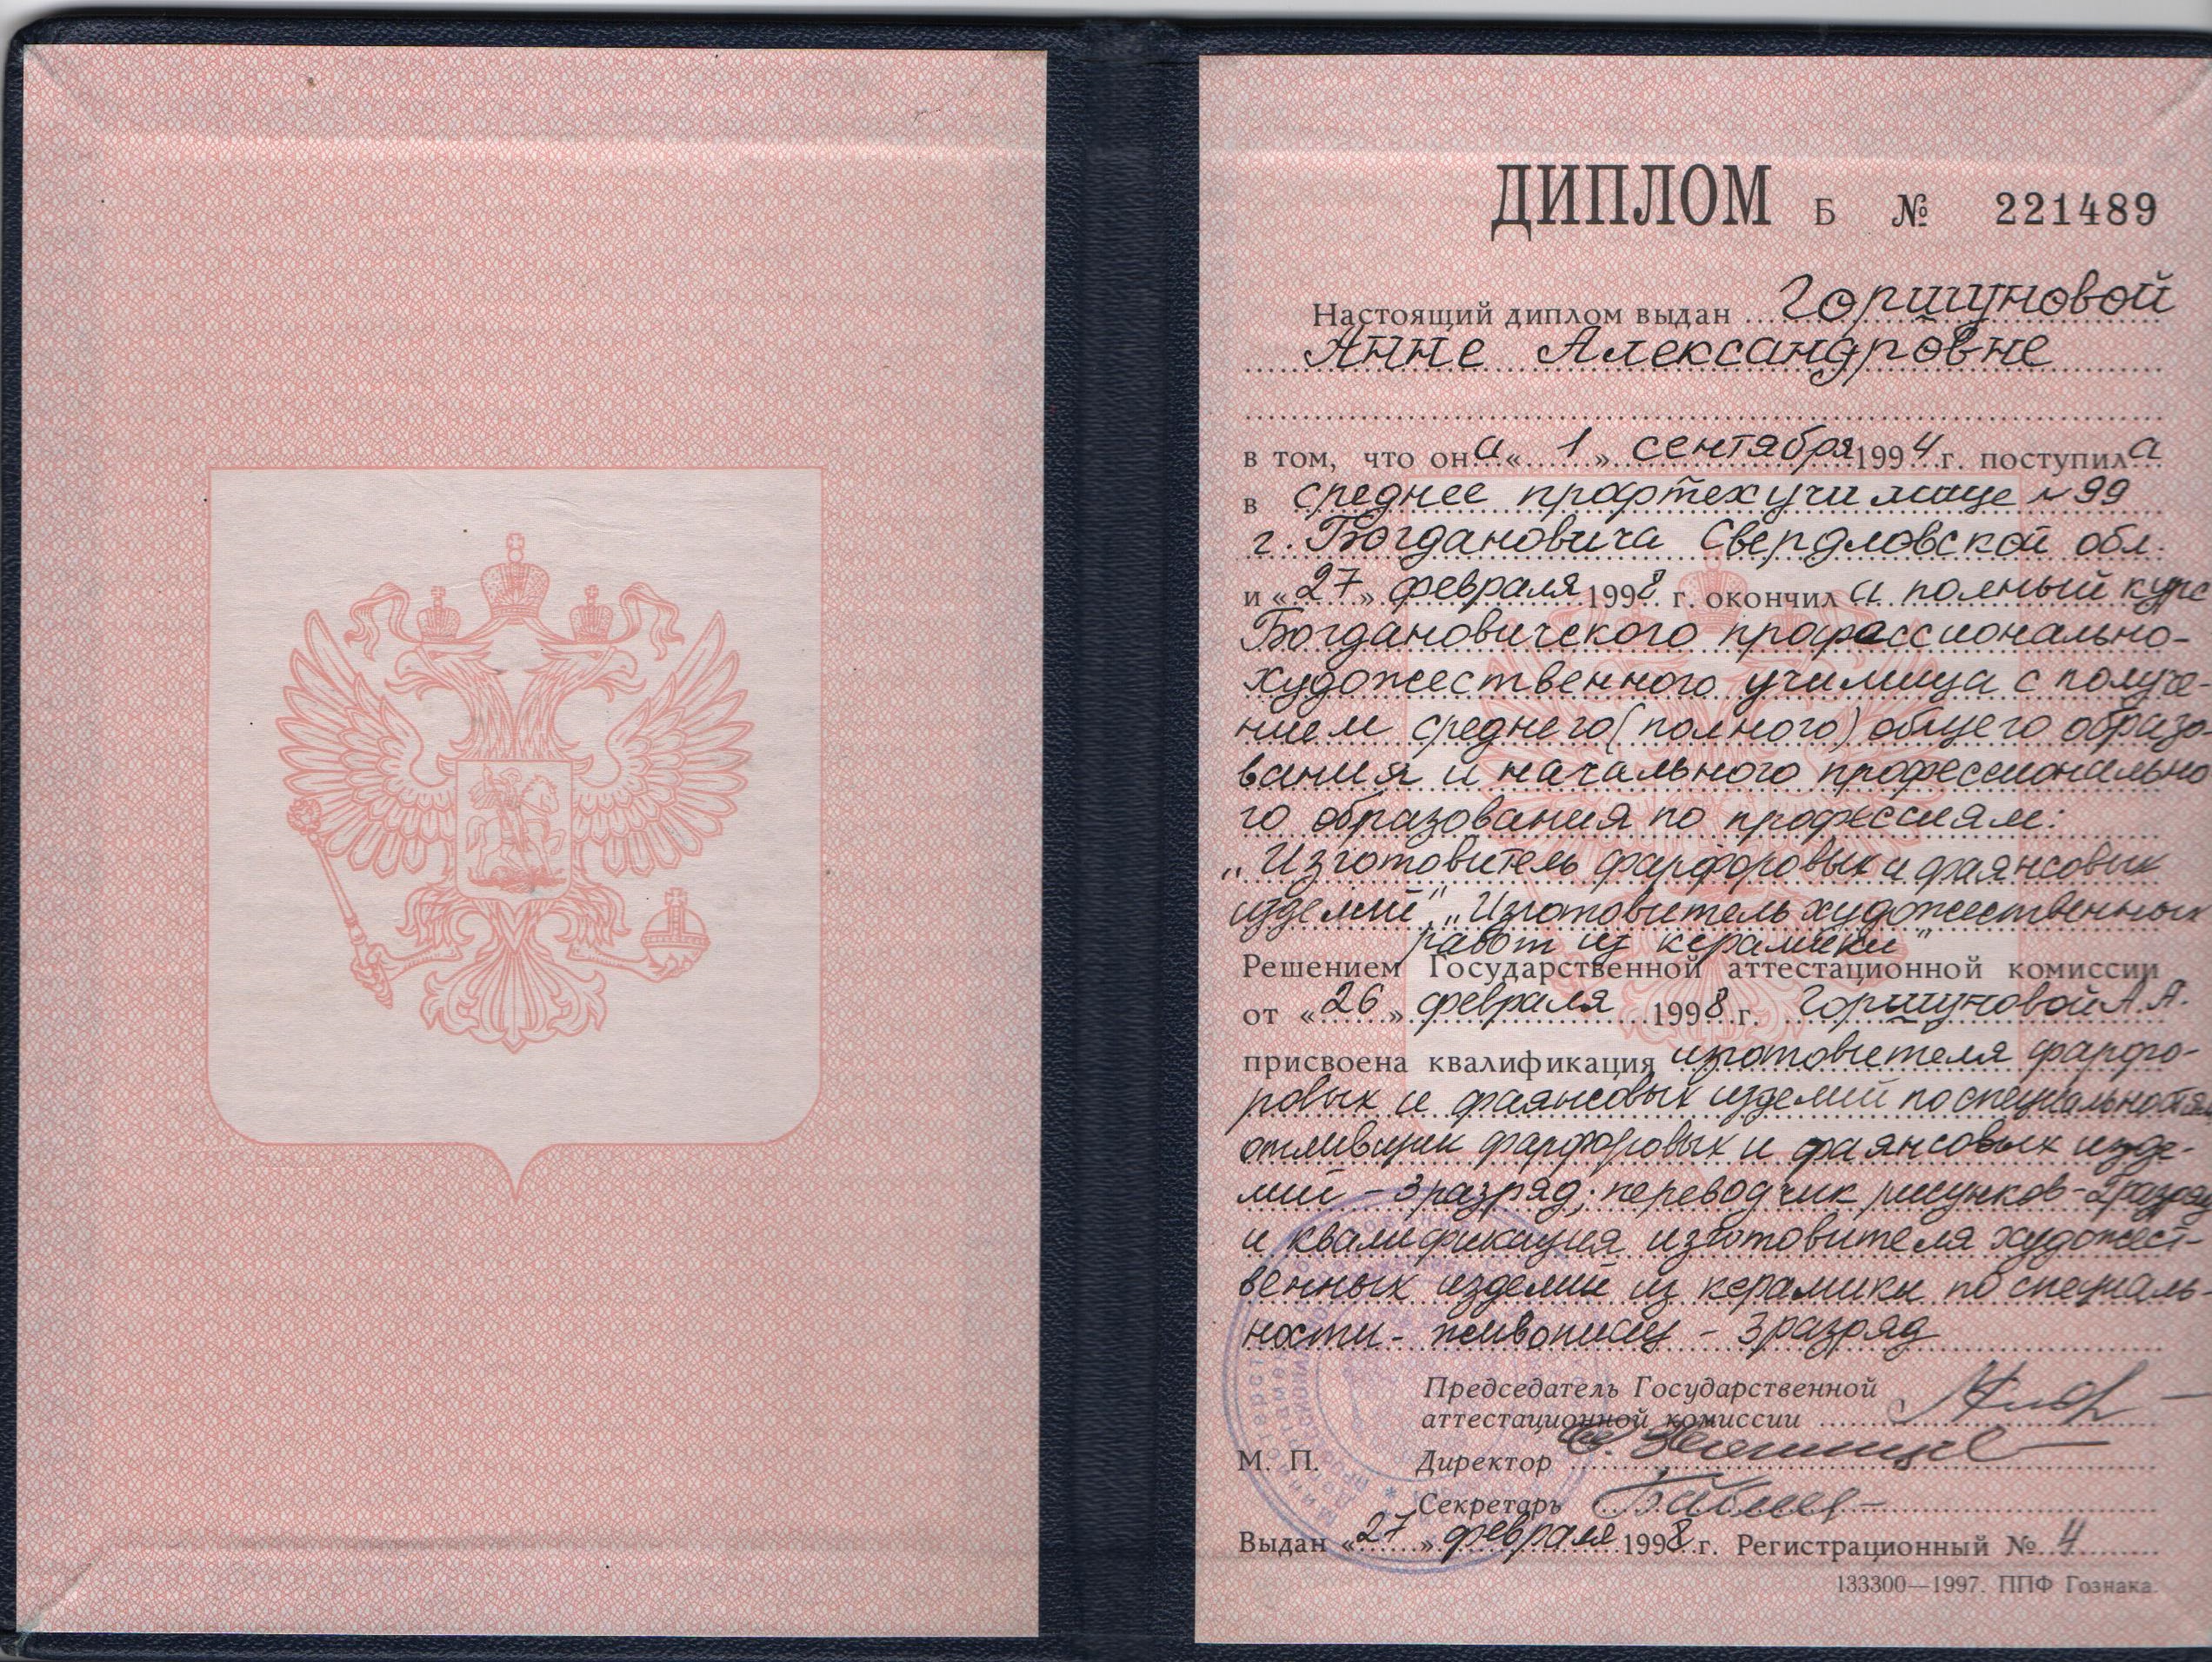 ДИПЛОМ Б № 221489
Настоящий диплом выдан Горшуновой
Анне Александровне
в том, что она «1» сентября 1994 г. поступила
в среднее профтехучилище № 99
г. Богдановича Свердловской обл.
и «27» февраля 1998 г. окончила полный курс
Богдановичского профессионально-
художественного училища с получе-
нием среднего (полного) общего образо-
вания и начального профессионально
го образования по профессиям:
„Изготовитель фарфоровых и фаянсовых
изделий", „Изготовитель художественных
работ из керамики"
Решением Государственной аттестационной комиссии
от «26» февраля 1998 г. Горшуновой А.А.
присвоена квалификация изготовителя фарфо-
ровых и фаянсовых изделий по специальностям
отливщик фарфоровых и фаянсовых изде-
лий - 3 разряд; переводчик рисунков - разряд
и квалификация изготовителя художест-
венных изделий из керамики по специаль-
ности - живописец - 3 разряд
Председатель Государственной
аттестационной комиссии
М. П. Директор
Секретарь
Выдан «27» февраля 1998 г. Регистрационный № 4
133300—1997. ППФ Гознака.